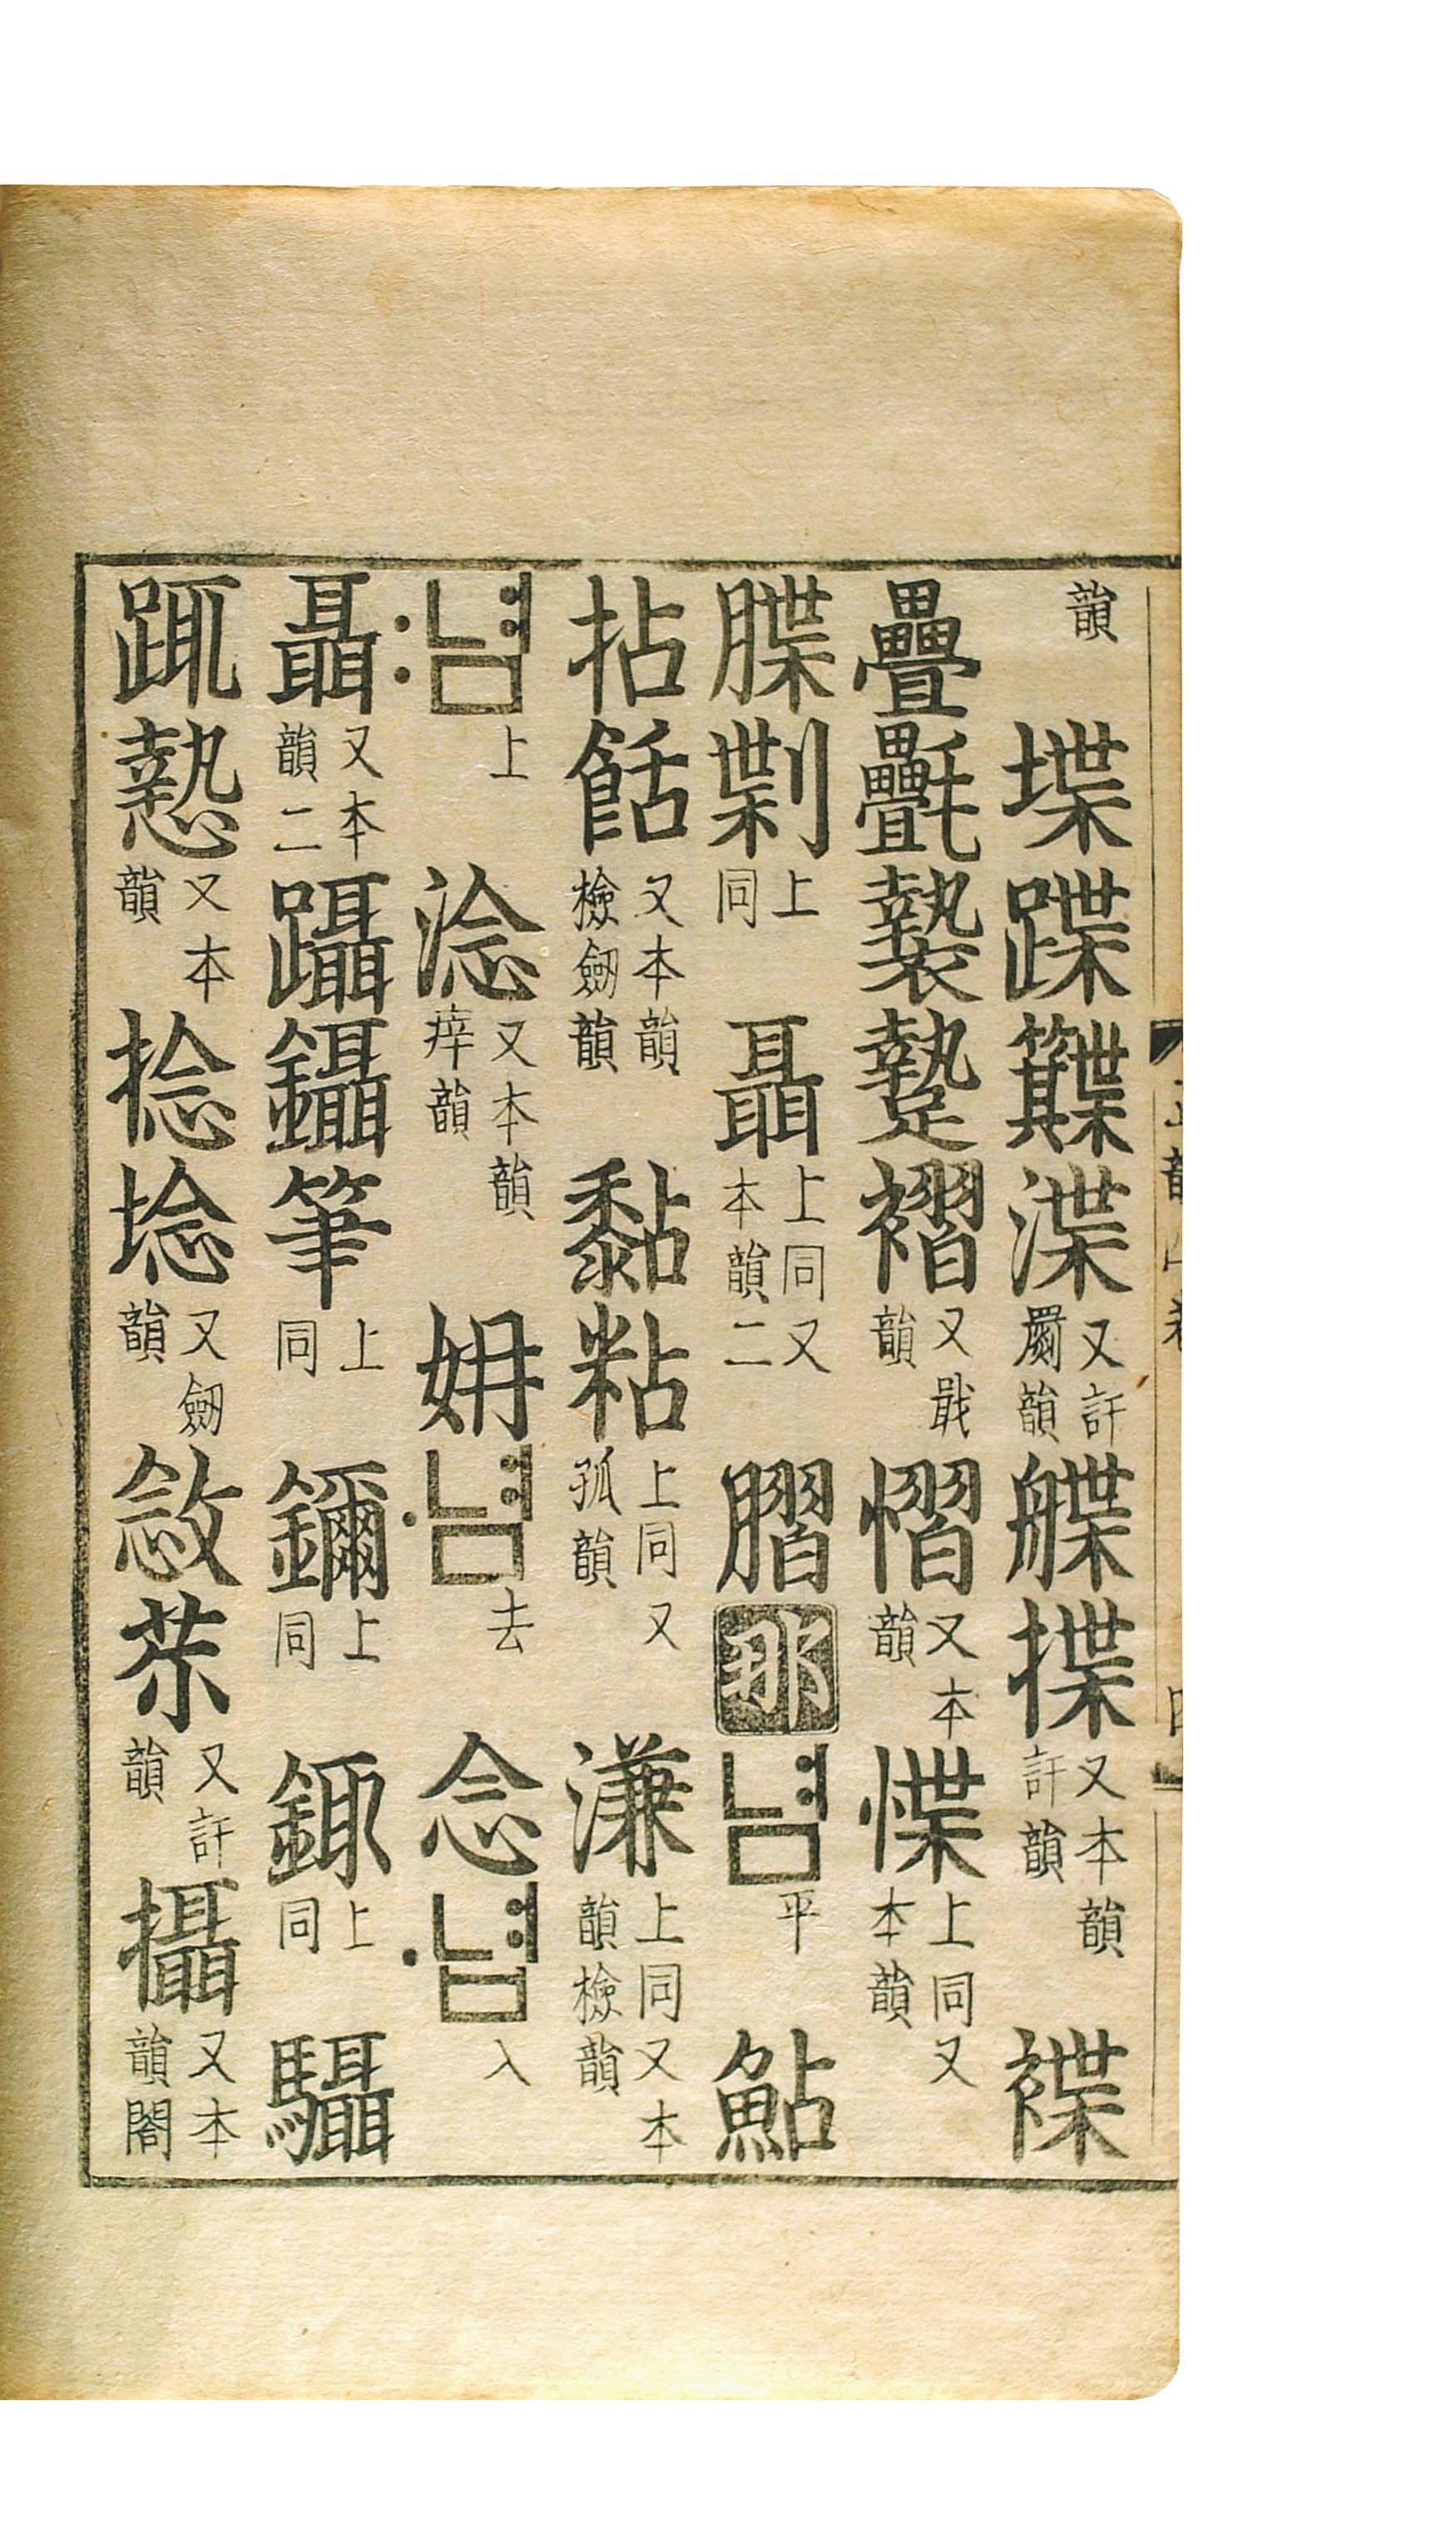 韻 堞蹀𥴊渫又訐罽韻艓揲又本韻訐韻褋
疊㲲褺蟄褶又戢韻慴又本韻惵上同又本韻
牒剿上同聶上同又本韻二膶那념平鮎
拈餂又本韻檢劒韻黏粘上同又孤韻溓上同又本韻檢韻
념上淰又本韻瘁韻姌념去念념入
聶又本韻二躡鑷筆上同鑈上同鋷上同驑
踂慹又本韻捻埝又劒韻敜苶又訐韻攝又本韻閤